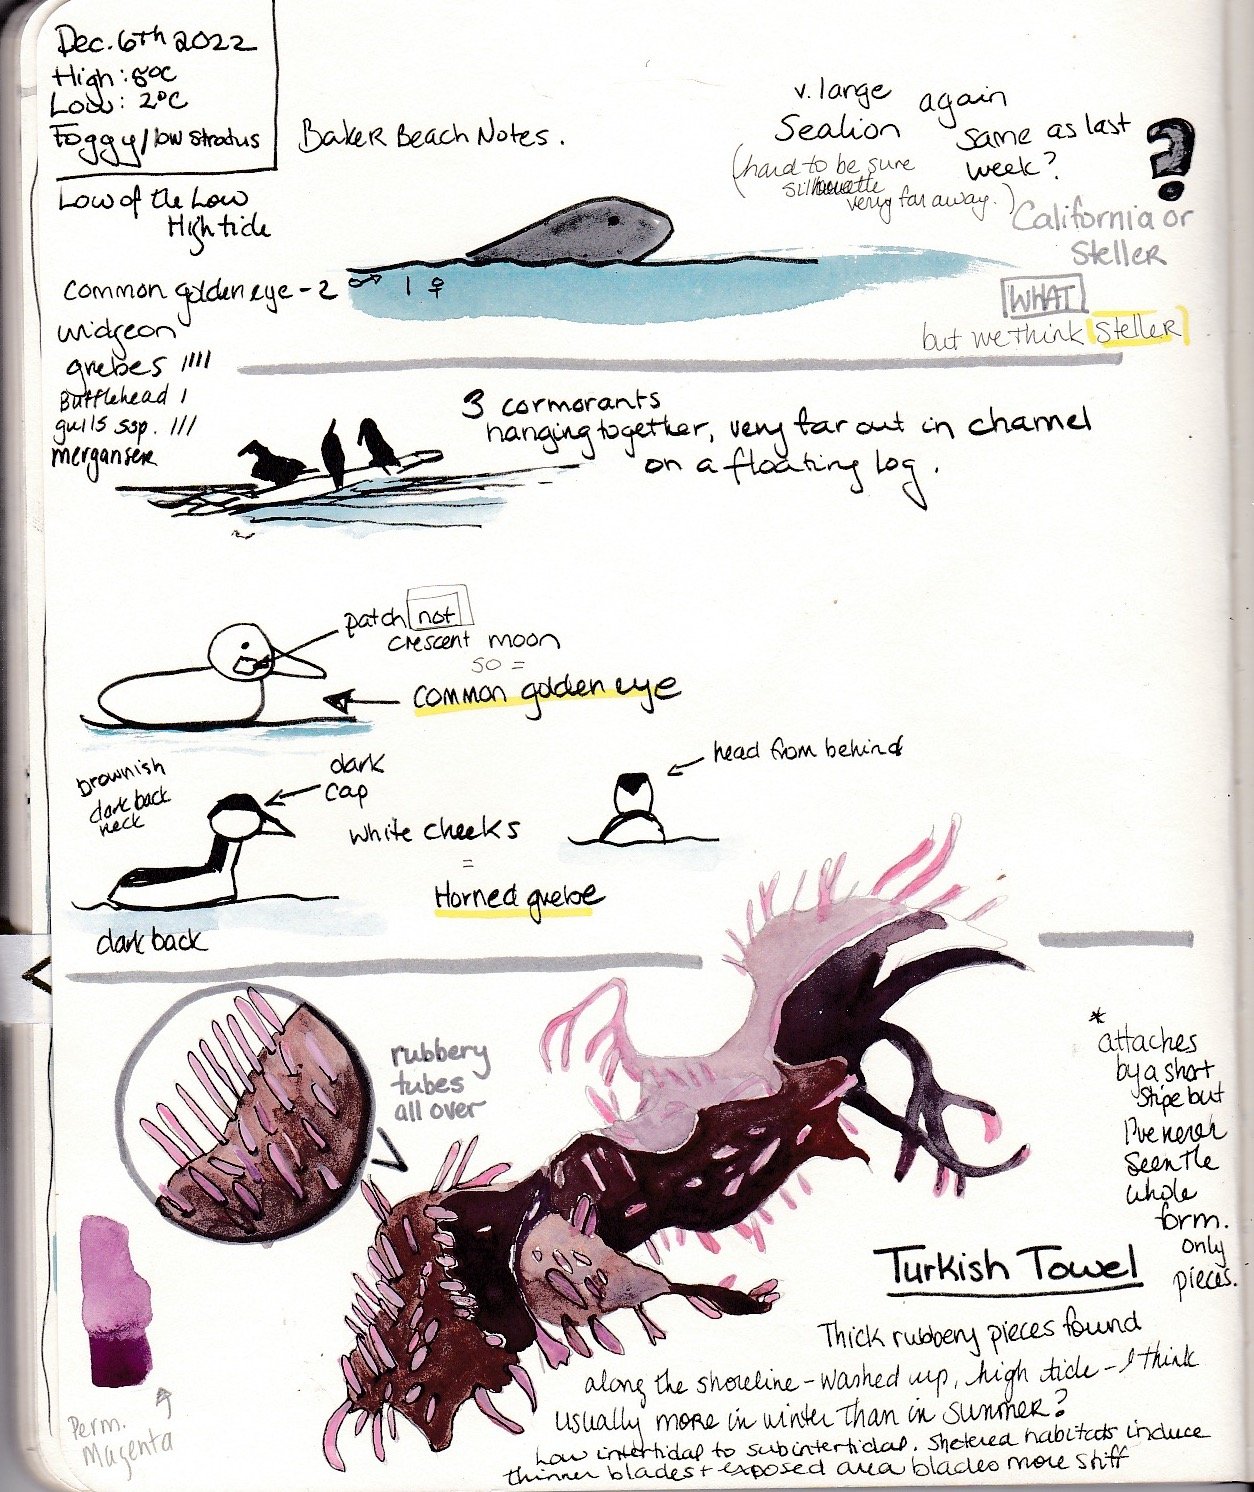 Dec. 6th 2022
High: 8°C
Low: 2°C
Foggy/low stratus
Baker Beach Notes.
Low of the Low
High tide
v. large
Sealion
again
same as last
week?
?
(hard to be sure
silhouette
very far away.)
California or
Steller
WHAT
but we think Steller
Common goldeneye - 2 ♂ 1 ♀
widgeon
grebes ||||
Bufflehead |
gulls ssp. |||
merganser
3 cormorants
hanging together, very far out in channel
on a floating log.
patch not
crescent moon
so =
common golden eye
brownish
dark back
neck
dark
cap
white cheeks
=
Horned grebe
head from behind
dark back
rubbery
tubes
all over
* attaches
by a short
stipe but
I've never
seen the
whole
form.
only
pieces.
Turkish Towel
Thick rubbery pieces found
along the shoreline - washed up, high tide - I think
usually more in winter than in summer?
Low intertidal to subintertidal. Sheltered habitats induce
thinner blades + exposed area blades more stiff
Perm.
Magenta